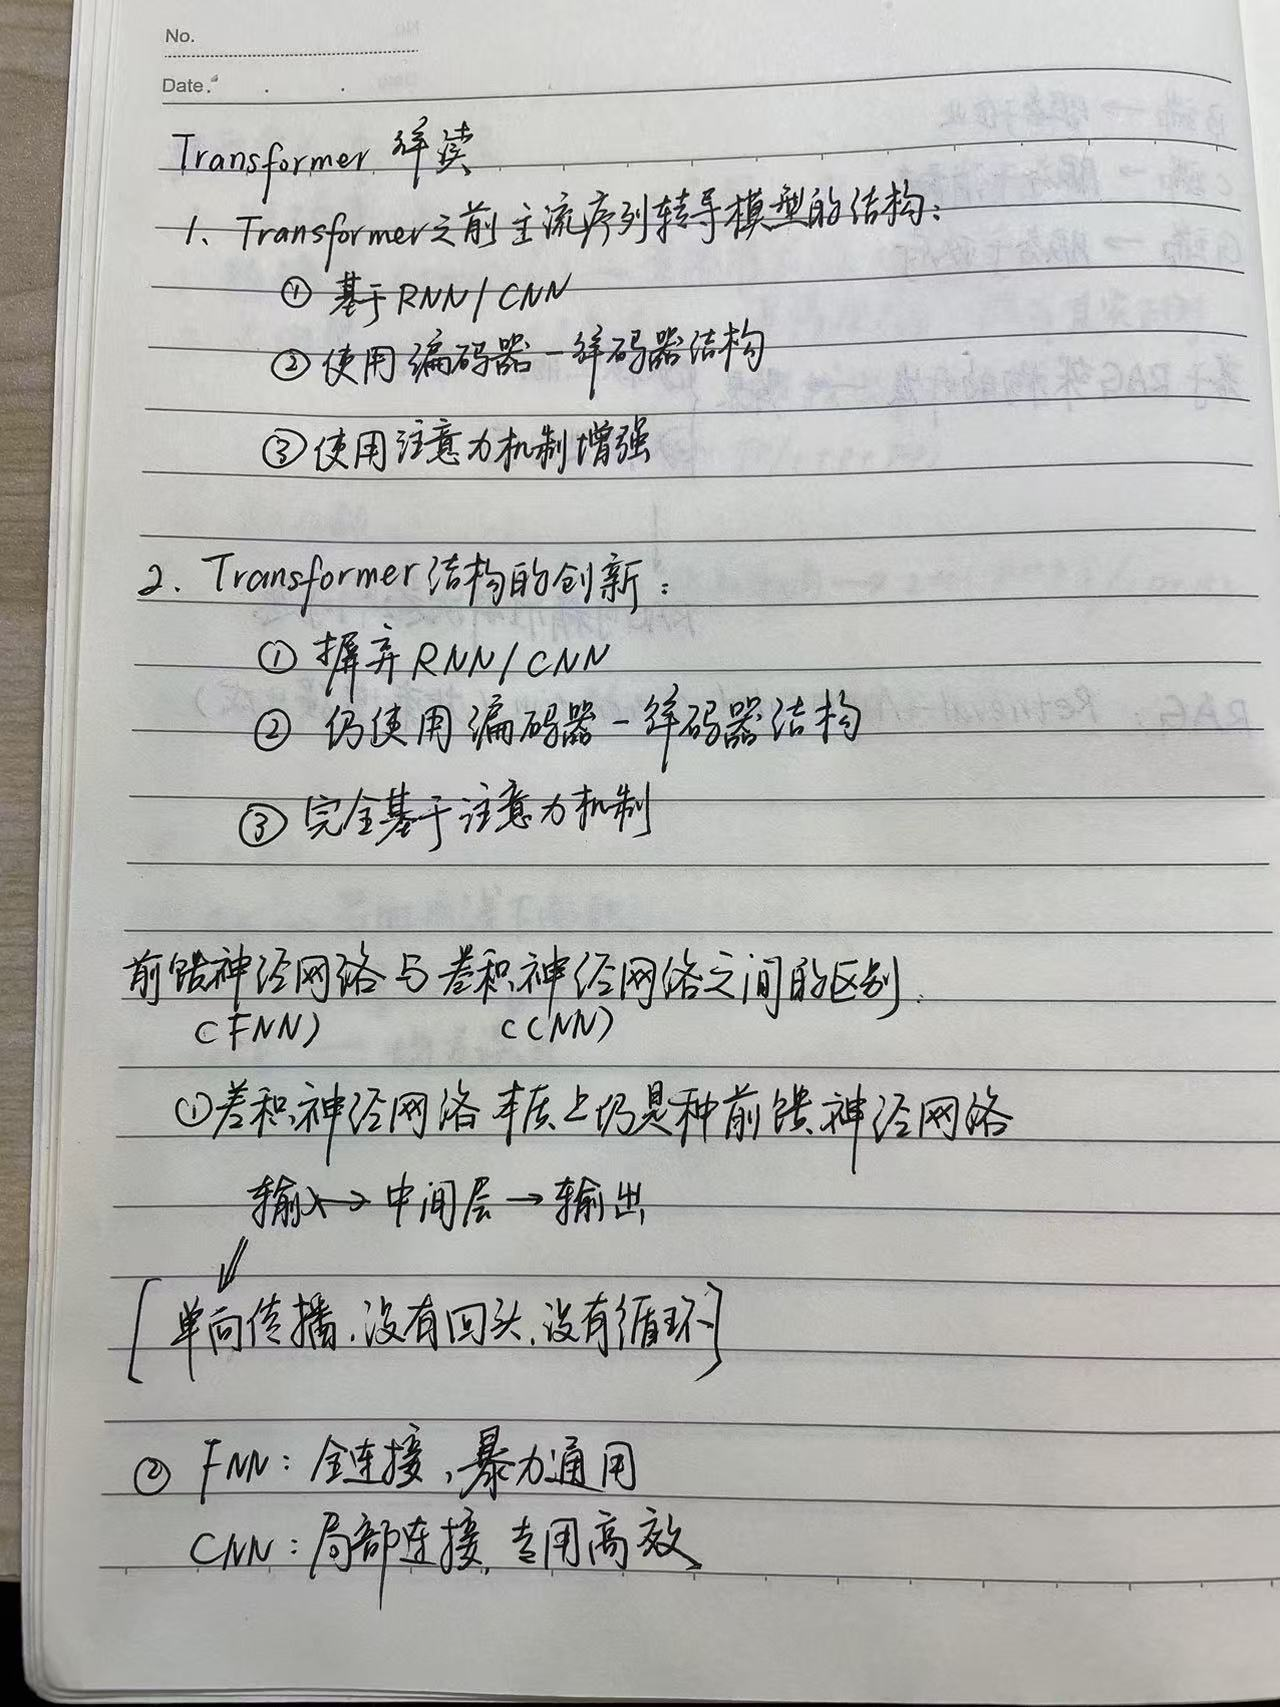 No.
Date.
Transformer 详读
1、Transformer之前主流序列转导模型的结构:
① 基于RNN/CNN
② 使用编码器-解码器结构
③ 使用注意力机制增强
2. Transformer结构的创新:
① 摒弃RNN/CNN
② 仍使用编码器-解码器结构
③ 完全基于注意力机制
前馈神经网络与卷积神经网络之间的区别:
(FNN) (CNN)
① 卷积神经网络本质上仍是种前馈神经网络
输入→中间层→输出
[单向传播,没有回头,没有循环]
② FNN: 全连接,暴力通用
CNN: 局部连接,专用高效